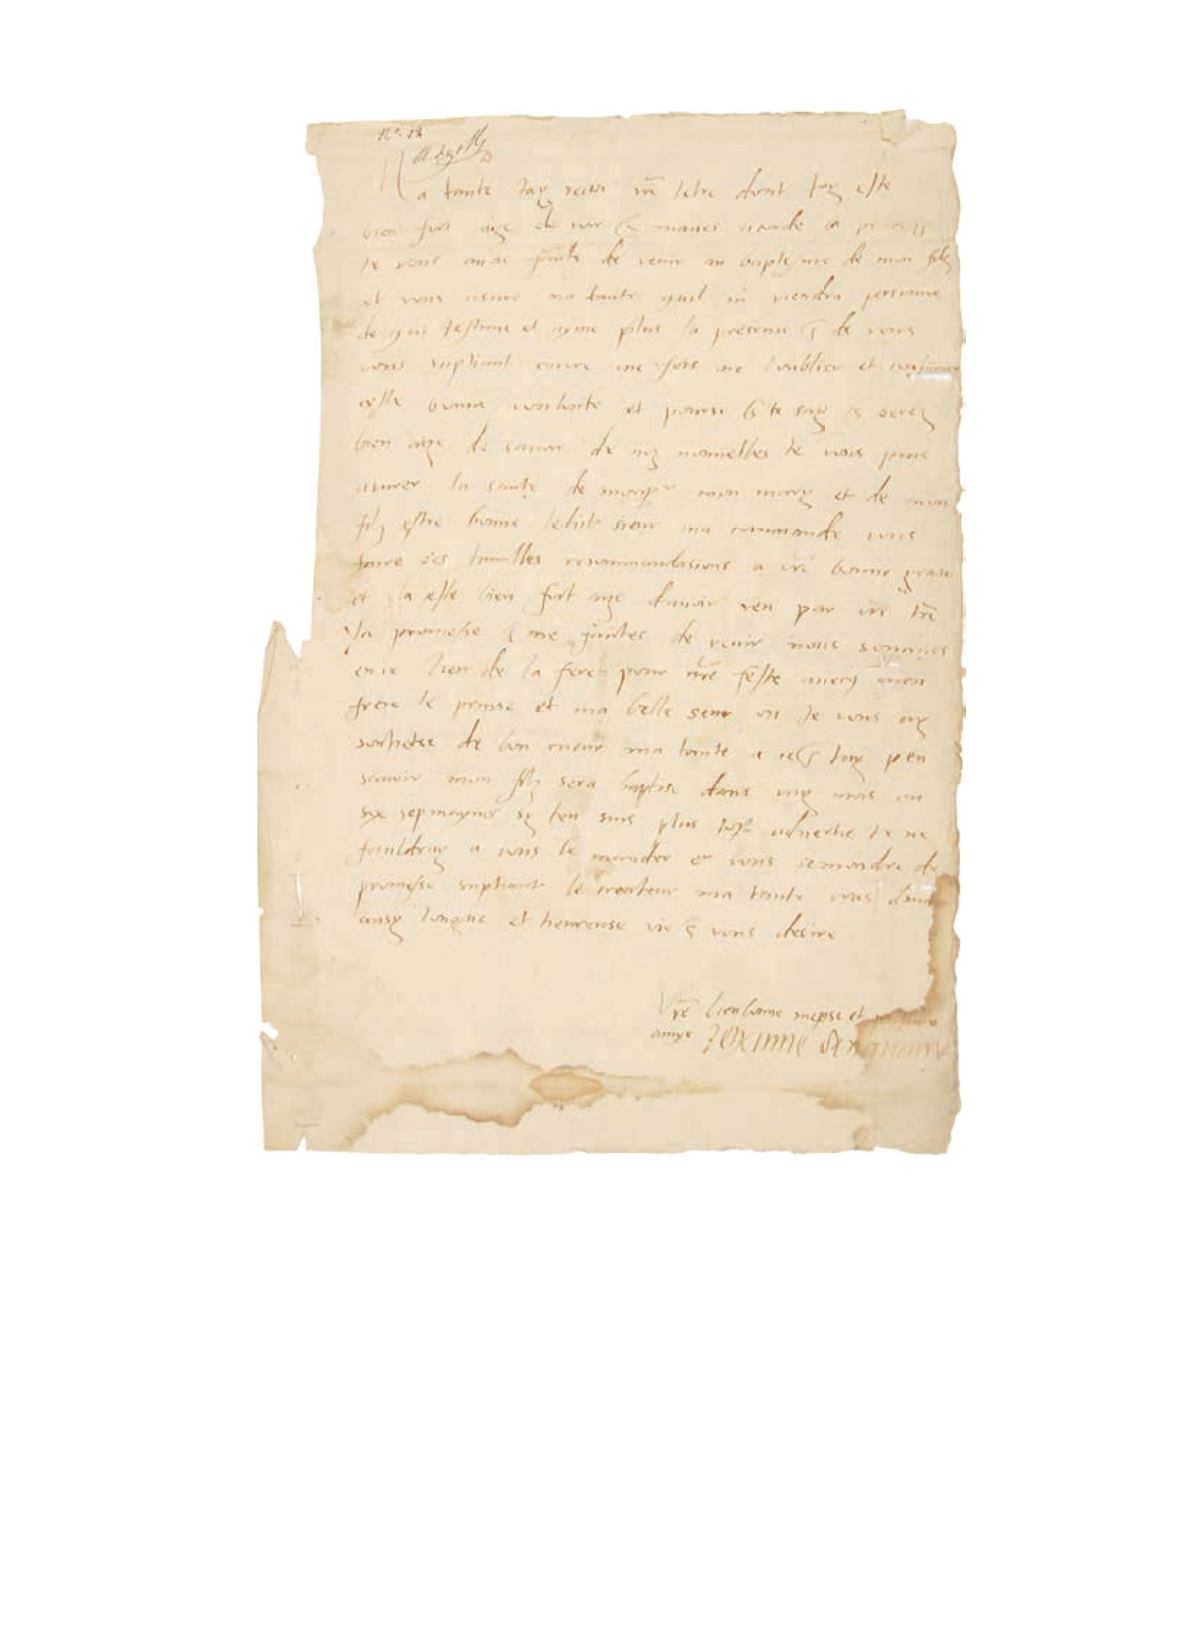 No 18
Ma tante Jay receu vre letre dont Jay este
bien fort aize et voir q maves mande la promesse
Je vous avois faite de venir au baptesme de mon filz
et vous asure ma tante quil ni viendra personne
de qui Jestime et ayme plus la presence q de vous
vous supliant encore une fois ne loublier et
ceste bonne vonlonte et pource q Je say q serez
bien aize de savoir de noz nouvelles Je vous puis
asurer la sante de monsr mon mary et de mon
filz estre bonne ledit sieur ma commande vous
faire ses humbles recommandasions a vre bonne grase
et a este bien fort aize davoir veu par vre lre
la promesse q me faites de venir nous sommes
en ce lieu de la fere pour nre feste avecq mon
frere le prinse et ma belle seur ou Je vous ay
souhetee de bon cueur ma tante a ce q Jay peu
scavoir mon filz sera baptise dans ung mois ou
six sepmaynes sy Jen suis plus tost advertie Je ne
fauldray a vous le mander et vous semondre de
promesse supliant le createur ma tante vous donner
ausy longue et heureuse vie q vous desire
Vre bien bonne niepse et
amye Jehanne de navarre